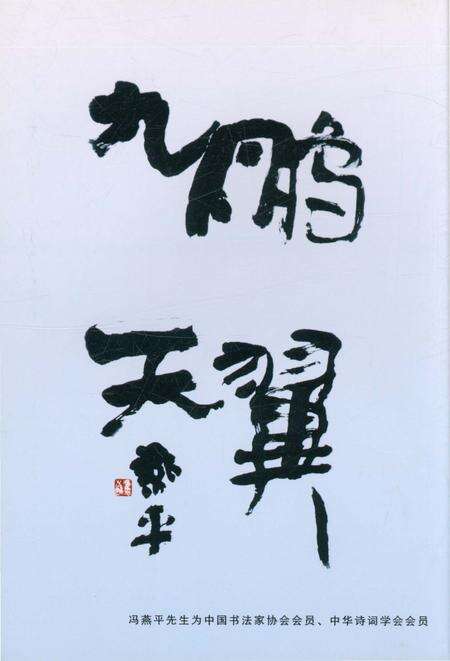 鹏翼
九天
燕平
冯燕平先生为中国书法家协会会员、中华诗词学会会员